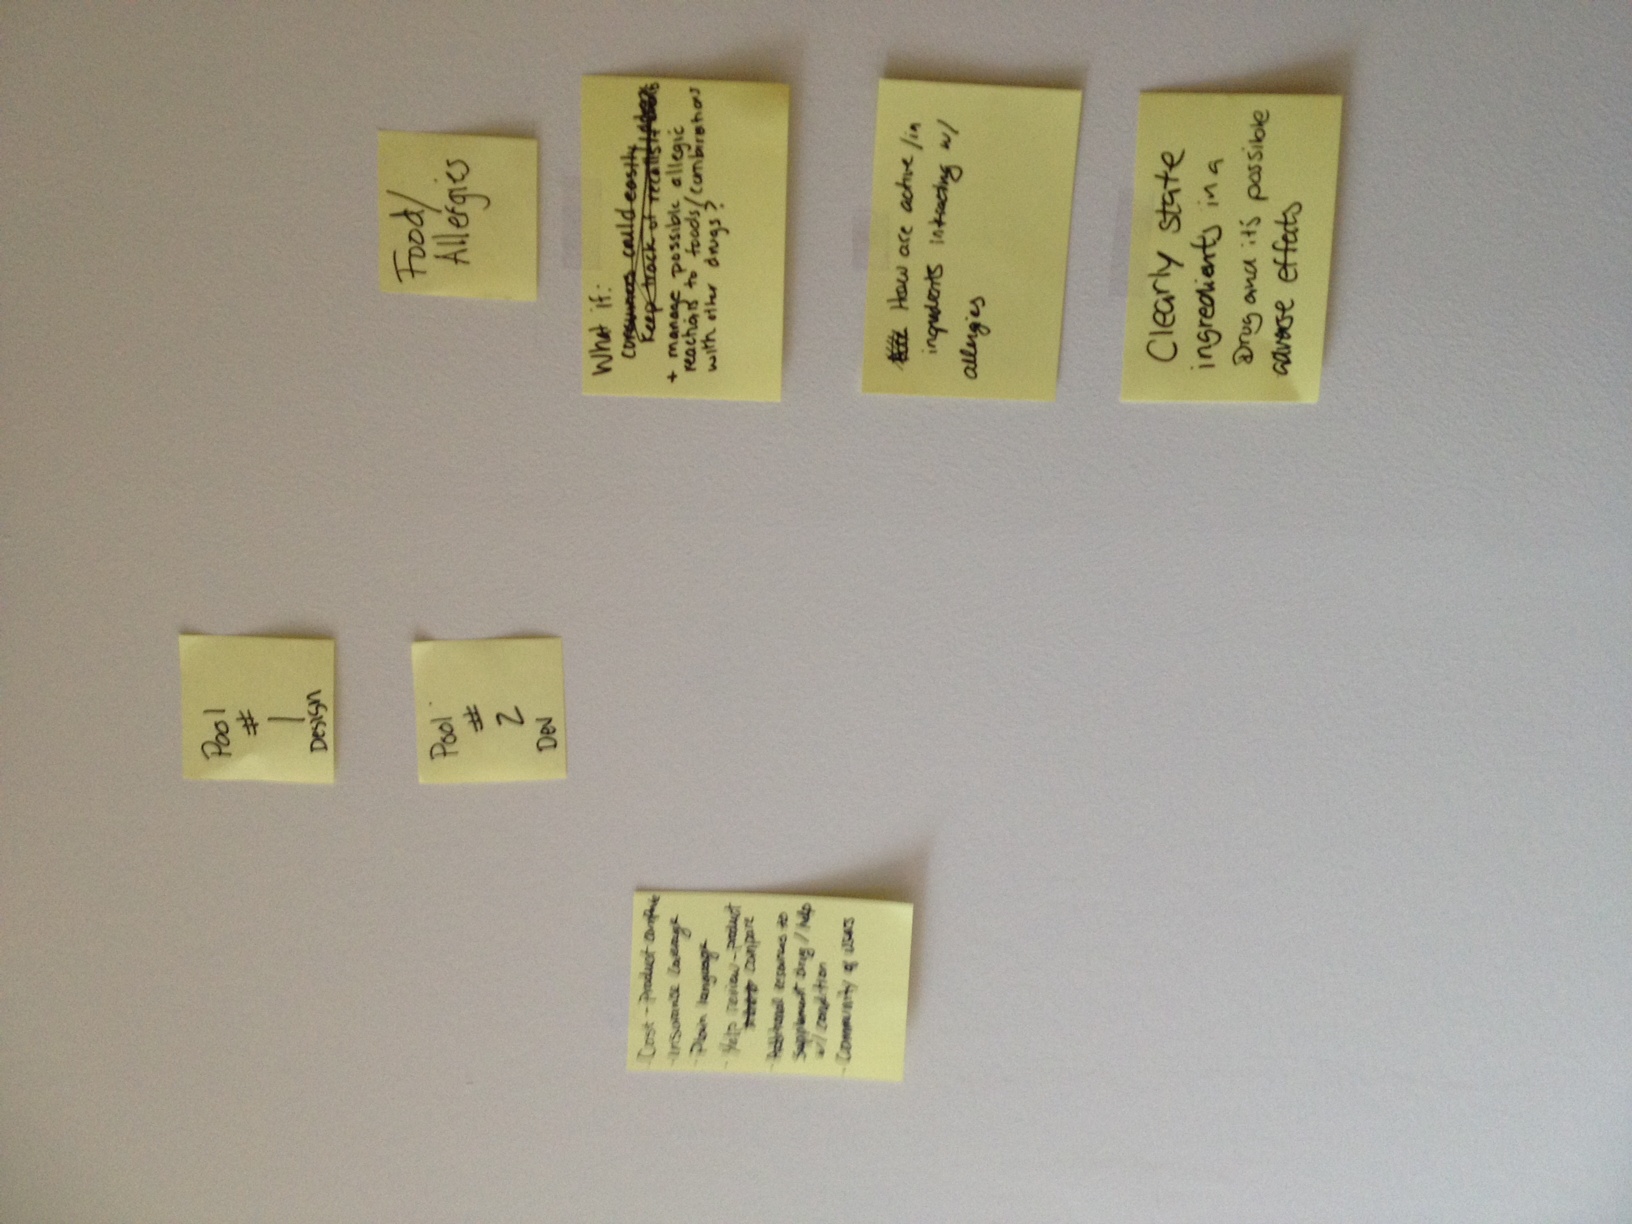 Pool
#
1
Design
Pool
#
2
Dev
- Cost - Product compare
- Insurance Coverage
- Plain language
- Help review - product
compare
- Additional resources to
supplement drug / help
w/ condition
- Community of users
Food/
Allergies
What if:
consumers could easily
keep track of recalls
+ manage possible allegic
reactions to foods/combinations
with other drugs?
How are active /in
ingredients interacting w/
allergies
Clearly state
ingredients in a
Drug and it's possible
adverse effects